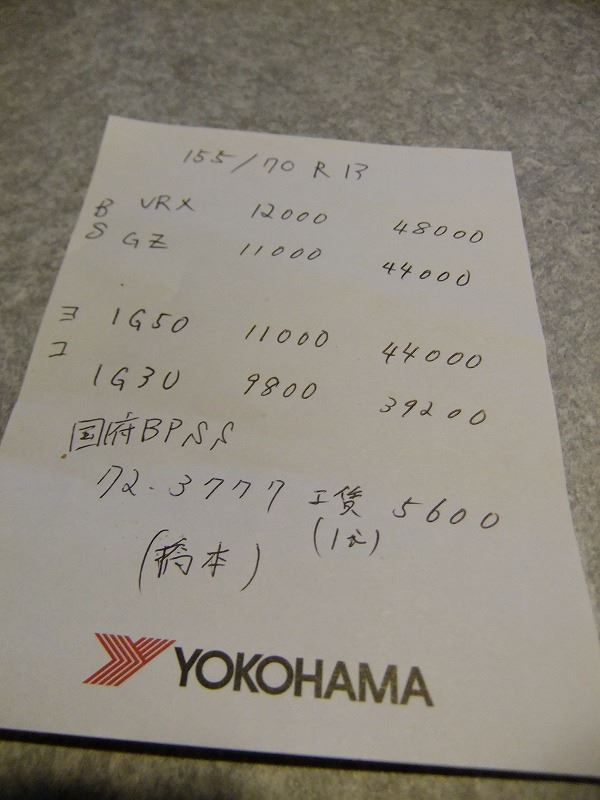 155/70 R 13
B VRX 12000 48000
S GZ 11000 44000
ヨ IG50 11000 44000
コ IG30 9800 39200
国府BPSS
72-3777 工賃 5600
(1台)
(橋本)
YOKOHAMA